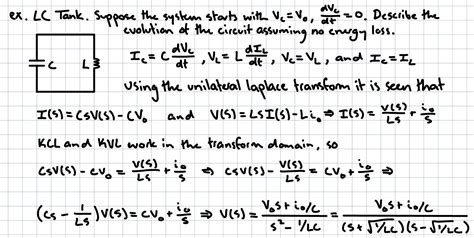 ex. LC Tank. Suppose the system starts with V_c=V_0, dV_c/dt=0. Describe the
evolution of the circuit assuming no energy loss.
C L
I_c = C dV_c/dt, V_L = L dI_L/dt, V_c=V_L, and I_c=I_L
Using the unilateral laplace transform it is seen that
I(s)=CsV(s)-CV_0 and V(s)=LsI(s)-Li_0 ⇒ I(s)= V(s)/Ls + i_0/s
KCL and KVL work in the transform domain, so
CsV(s)-CV_0 = V(s)/Ls + i_0/s ⇒ CsV(s) - V(s)/Ls = CV_0 + i_0/s ⇒
(Cs - 1/Ls)V(s)=CV_0+ i_0/s ⇒ V(s)= (V_0s+i_0/C)/(s²-1/LC) = (V_0s+i_0/C)/((s+√1/LC)(s-√1/LC))